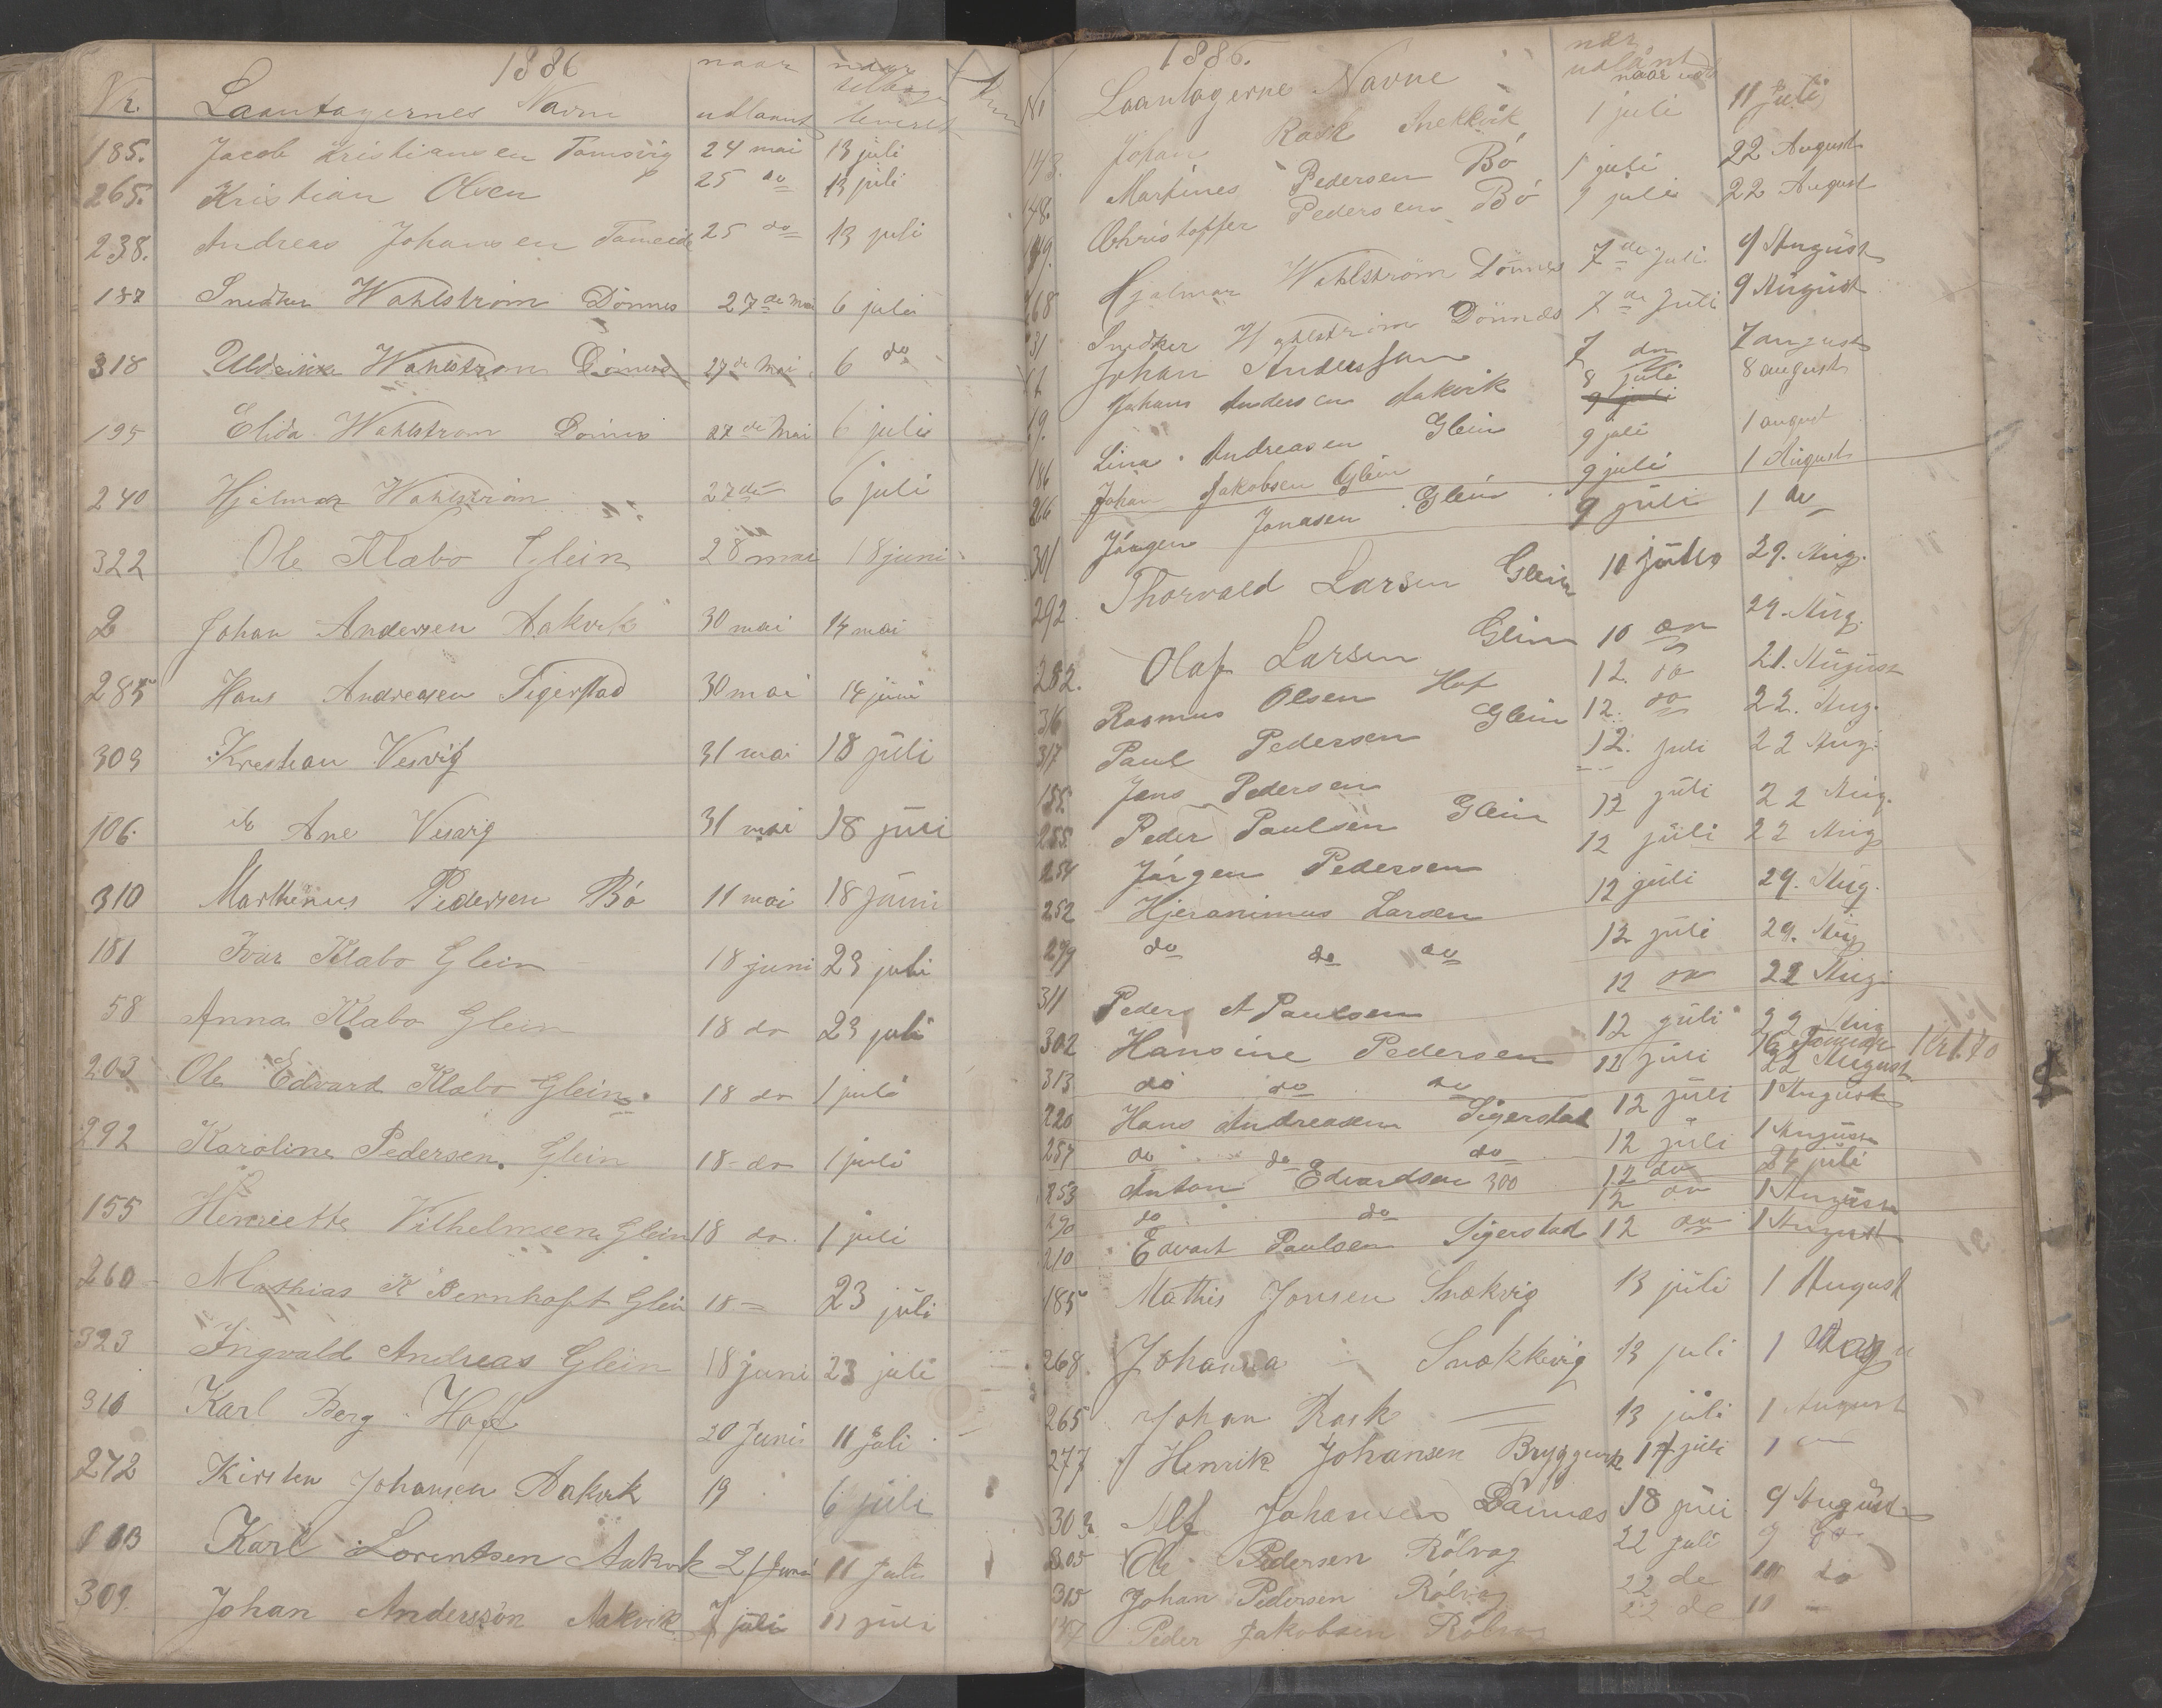 1886
Nr. Laantagernes Navn naar udlaant naar tilbageleveret
185. Jacob Kristiansen Tomsvig 24 mai 13 juli
265. Kristian Olsen 25 do 13 juli
238. Andreas Johansen 25 do 13 juli
187 Snedker Wahlstrøm Dönnes 27de Mai 6 juli
318 Uldrikke Wahlstrøm Dönnes 27de Mai 6 do
195 Elida Wahlstrøm Dönnes 27de Mai 6 juli
240 Hjalmar Wahlstrøm 27de 6 juli
322 Ole Klabo Glein 28 mai 18 juni
2 Johan Andersen Aakvik 30 mai 14 mai
285 Hans Andreasen Sigerstad 30 mai 14 juni
303 Krestian Vesvig 31 mai 18 juli
106. do Ane Vesvig 31 mai 18 juli
310 Marthinus Pedersen Bó 11 mai 18 juni
181 Ivar Klabo Glein 18 juni 23 juli
58 Anna Klabo Glein 18 do 23 juli
203 Ole Edvard Klabo Glein. 18 do 1 juli
292 Karoline Pedersen. Glein 18 do 1 juli
155 Henriette Vilhelmsen Glein 18 do. 1 juli
260 Mathias K Bernhoft Glein 18 = 23 juli
323 Ingvald Andreas Glein 18 juni 23 juli
310 Karl Berg Hoff 20 Juni 11 juli
272 Kirsten Johansen Aakvik 19 6 juli
113 Karl Lorentsen Aakvik 21 Juni 11 Juli
309. Johan Anderssön Aakvik 7 juli 11 juli
1886.
Nr Laantagerne Navne naar udlånt
143. Johan Rask Snekkvik 1 juli 11 juli
148. Martines Pedersen Bó 1 juli 22 August
149. Christoffer Pedersen Bó 1 juli 22 August
268 Hjalmar Wahlström Dönnes 7de juli 9 August
31 Snedker Wahlström Dönnæs 7de Juli 9 August
Johan Anderssen 7 do 7 august
19. Johans Andersen Aakvik 8 juli 8 august
186 Lina Andreasen Glein 9 juli 1 august
266 Johan Jakobsen Glein 9 juli 1 August
301 Jörgen Jonasen Glein 9 juli 1 do
292 Thorvald Larsen Glein 10 juli 29. Aug.
282. Olaf Larsen Glein 10 do 29. Aug.
316 Rasmus Olsen Hof 12. do 21. August
317 Paul Pedersen Glein 12. do 22. Aug.
155. Jens Pedersen 12. juli 22 Aug.
255. Peder Paulsen Glein 12 juli 22 Aug.
254 Jörgen Pedersen 12 juli 22 Aug
252 Hjeranimus Larsen 12 juli 29. Aug.
299 do do do 12 juli 29. Aug
311 Peders A Paulsen 12 do 22 Aug.
302 Hansine Pedersen 12 juli 22 Aug
16 Januar 1 Kr 1.70
313 do do do 12 juli 22 August
220 Hans Andreasen Sigerstad 12 juli 1 August
257 do do do 12 juli 1 August
253 Anton Edvardsen 300 12 do 24 juli
290 do do 12 do 1 August
210 Edvart Paulsen Sigerstad 12 do 1 August
185 Mathis Jonsen Snækvig 13 juli 1 August
268 Johanna Snækkvig 13 juli 1
265 Johan Rask — 13 juli 1 August
277 Henrik Johansen 17 juli 1
303 Alf Johansen Dönnæs 18 juli 9 August
305 Ole Pedersen Rölvag 22 juli 9 do
315 Johan Pedersen Rölvag 22 de 10 do
147 Peder Jakobsen Rölvag 22 de 10